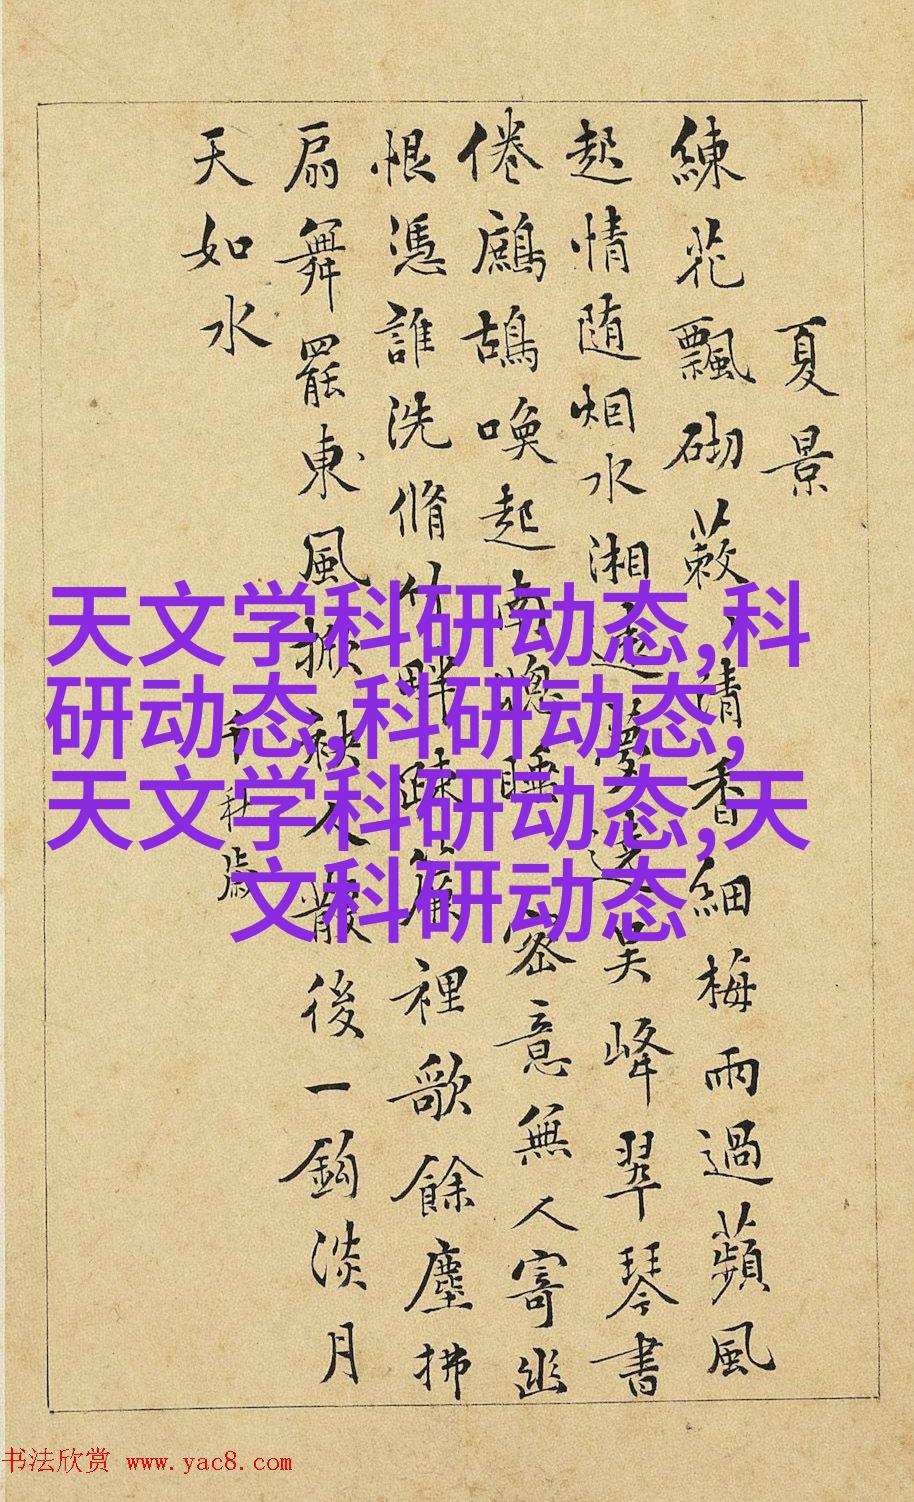 夏景
練花飄砌蔌〻清香細梅雨過蘋風
起情随烟水湘遠夢遶吳峰翠琴書
倦鷓鴣喚起南窻睡密意無人寄幽
恨憑誰洗脩竹畔疎簾裡歌餘塵拂
扇舞罷東風掀袂人散後一鈎淡月
天如水
千秋歲
天文学科研动态,科
研动态,科研动态,
天文学科研动态,天
文科研动态
书法欣赏 www.yac8.com